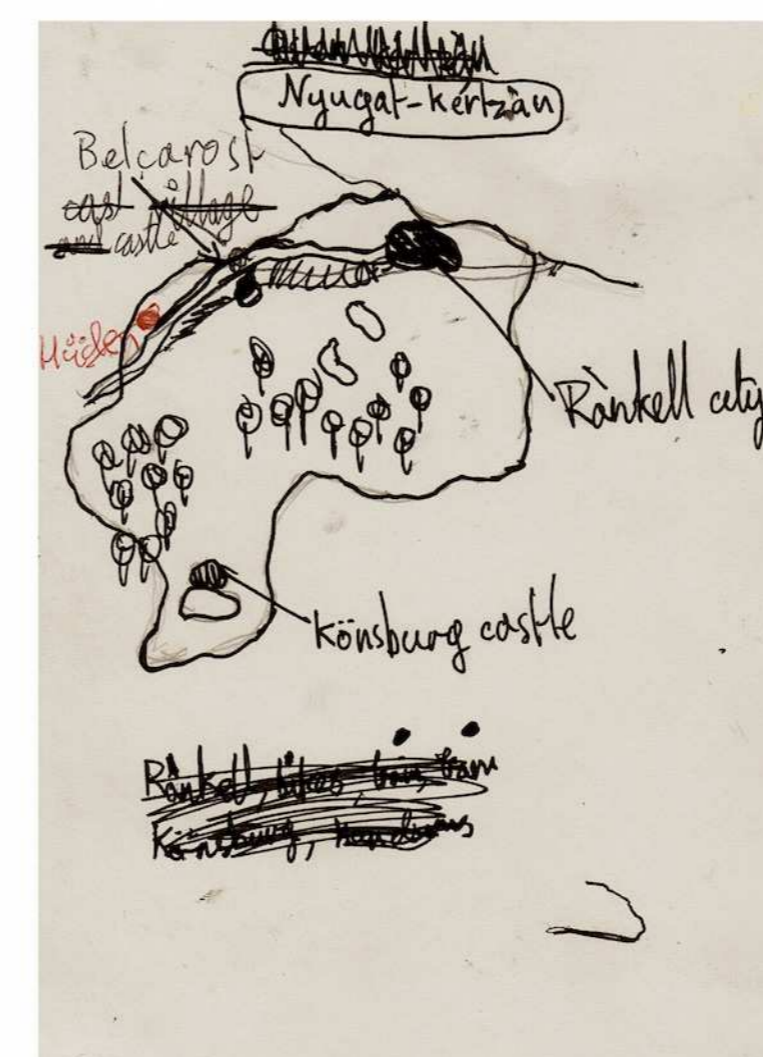 Nyugat-kértzàn
Belçarost
east village
and castle
Hüslen
Rànkell city
Könsburg castle
Rànkell, bikes, train, tram
Könsburg,